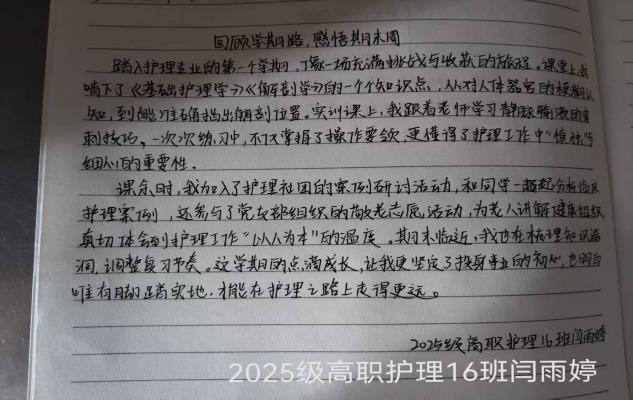 回顾学期路,感悟期末周
踏入护理专业的第一个学期,像一场充满挑战与收获的旅程。课堂上,我
啃下了《基础护理学》《解剖学》的一个个知识点,从对人体器官的模糊认
知,到能准确指出解剖位置。实训课上,我跟着老师学习静脉输液的穿
刺技巧,一次次练习中,不仅掌握了操作要领,更懂得了护理工作中“慎独”与
细心的重要性。
课余时,我加入了护理社团的案例研讨活动,和同学一起分析临床
护理案例,还参与了党支部组织的敬老志愿活动,为老人讲解健康知识,
真切体会到护理工作“以人为本”的温度。期末临近,我也在梳理知识漏
洞,调整复习节奏。这学期的点滴成长,让我更坚定了投身专业的初心,也明白
唯有脚踏实地,才能在护理之路上走得更远。
2025级高职护理16班闫雨婷
2025级高职护理16班闫雨婷